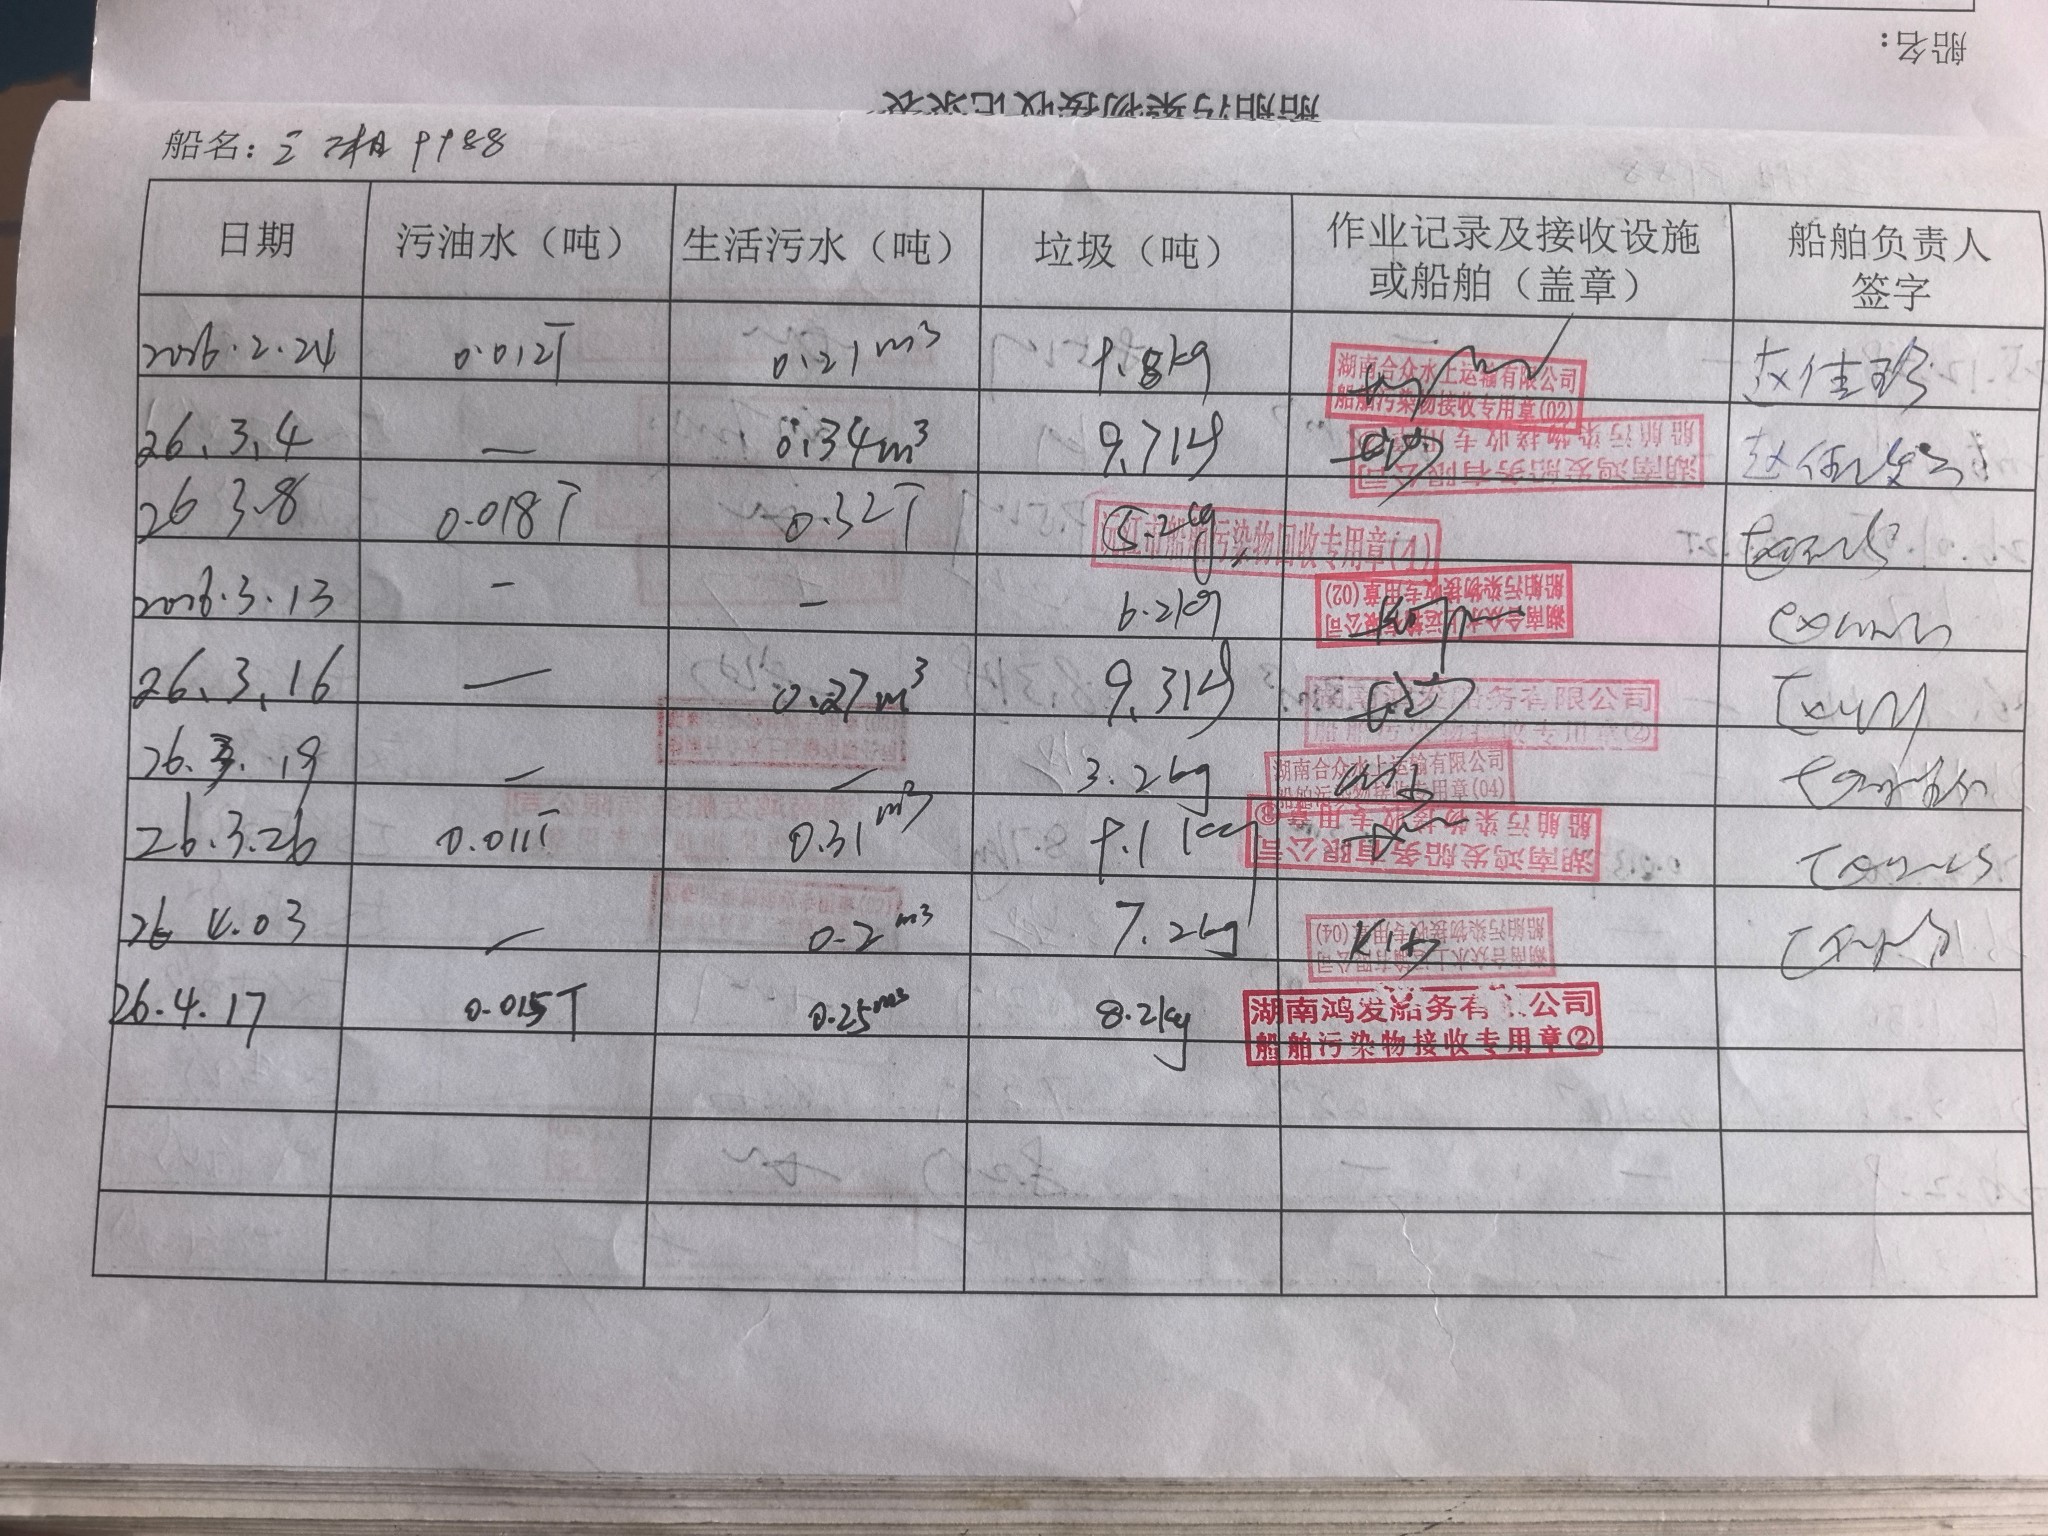 船名：
船舶污染物接收记录表
船名：三湘9988
日期 污油水（吨） 生活污水（吨） 垃圾（吨） 作业记录及接收设施或船舶（盖章） 船舶负责人签字
2026.2.24 0.012T 0.21m³ 9.8kg 湖南合众水上运输有限公司
船舶污染物接收专用章(02)
26.3.4 — 0.34m³ 9.7kg 湖南鸿发船务有限公司
船舶污染物接收专用章
26 3.8 0.018T 0.32T 5.2kg 沅江市船舶污染物回收专用章(1)
2026.3.13 - - 6.2kg 湖南合众水上运输有限公司
船舶污染物接收专用章(02)
26.3.16 — 0.27m³ 9.3kg 湖南鸿发船务有限公司
船舶污染物接收专用章②
26.3.19 — — 3.2kg 湖南合众水上运输有限公司
船舶污染物接收专用章(04)
26.3.26 0.011T 0.31m³ 9.1kg 湖南鸿发船务有限公司
船舶污染物接收专用章⑧
26 4.03 — 0.2m³ 7.2kg 湖南合众水上运输有限公司
船舶污染物接收专用章(04)
26.4.17 0.015T 0.25m³ 8.2kg 湖南鸿发船务有限公司
船舶污染物接收专用章②